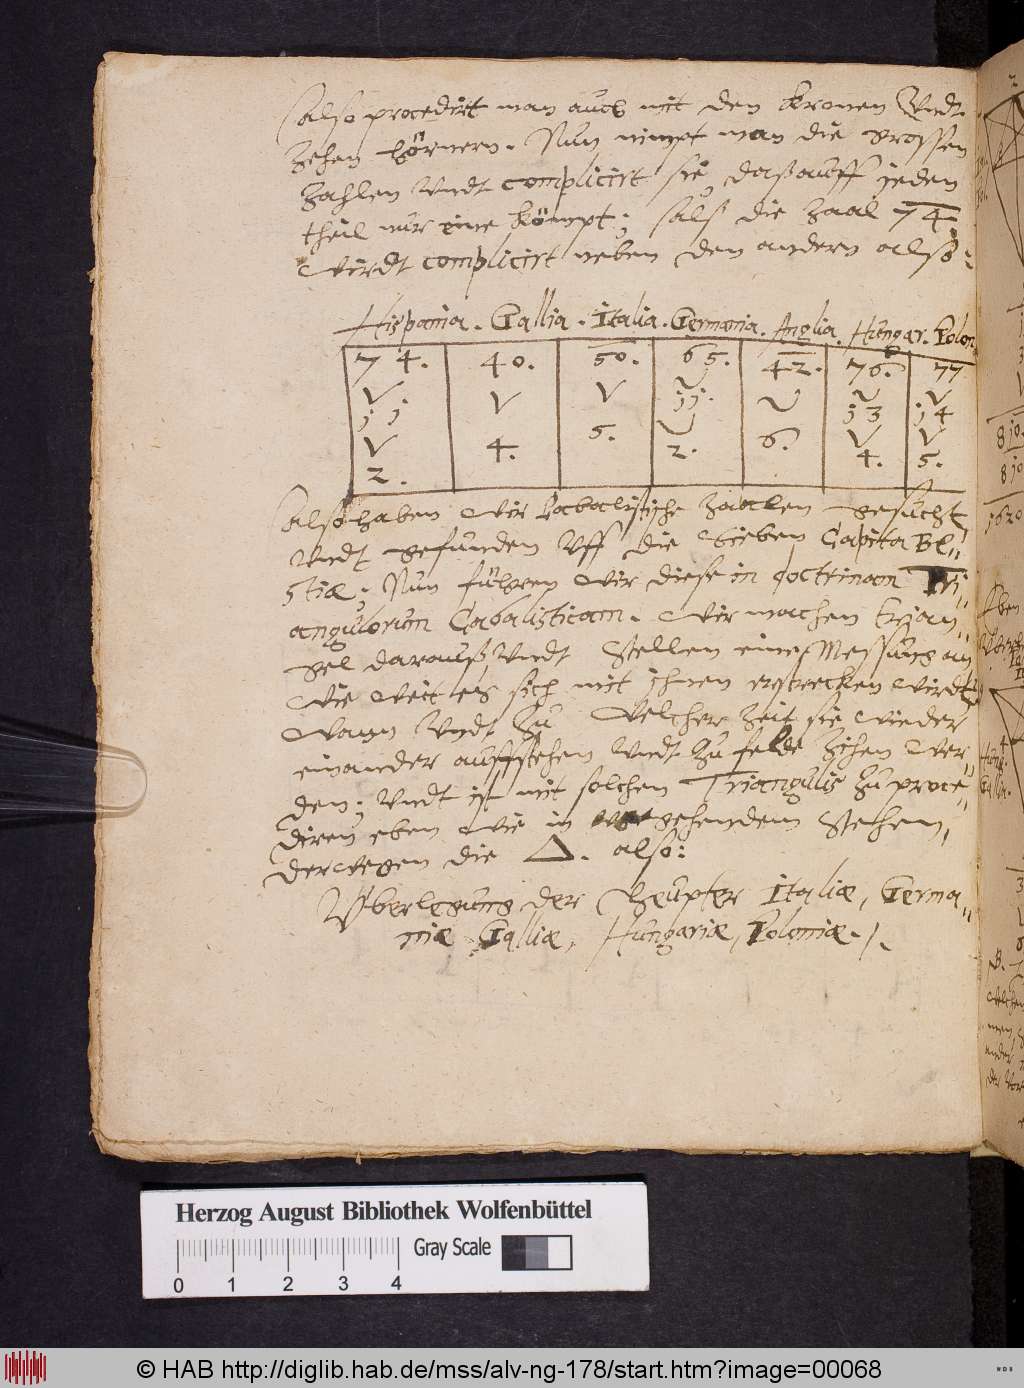 also procedirt man auch mit den kronen Vndt
zehen hörnern. Nun nimpt man die grossen
Zahlen Vndt complicirt sie, daß auff jeden
theil nur eine kömpt; als die Zaal 74.
Wirdt complicirt neben den andern also:
Hispania. Gallia. Italia. Germania. Anglia. Hungar. Polon.
74. 40. 50. 65. 42. 76. 77
V V V V V V V
11 4. 5. 11. 6. 13 14
V V V V
2. 2. 4. 5.
also haben wir Cabalistische Zaalen gesucht
Vndt gefunden Vff die Sieben Capita Be
stiæ. Nun führen wir diese in doctrinam Tri
angulorum Cabalisticam. Wir machen trian
gel darauß Vndt stellen eine Messung an
wie weit es sich mit ihnen erstrecken wirdt
wann Vndt zu welcher Zeit sie wieder
einander auffstehen Vndt zu felde zihen wer
den; Vndt ist mit solchen Triangulis zu proce
diren eben wie in vorgehendem
derwegen die Δ. also:
Vberlegung der Heupter Italiæ, Germa
niæ Galliæ, Hungariæ, Poloniæ.
Herzog August Bibliothek Wolfenbüttel
Gray Scale
0 1 2 3 4
© HAB http://diglib.hab.de/mss/alv-ng-178/start.htm?image=00068